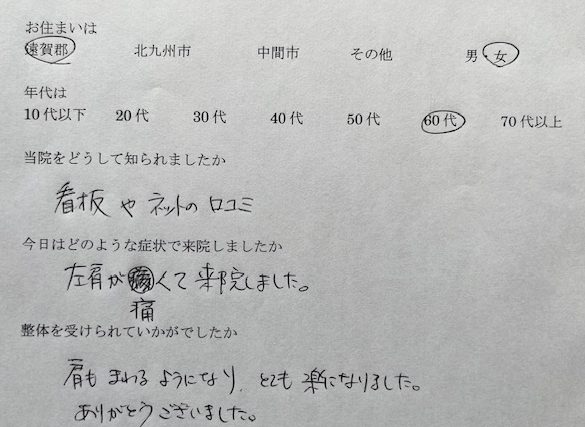 お住まいは
遠賀郡 北九州市 中間市 その他 男・女
年代は
10代以下 20代 30代 40代 50代 60代 70代以上
当院をどうして知られましたか
看板や ネットの口コミ
今日はどのような症状で来院しましたか
左肩が くて 来院しました。
痛
整体を受けられていかがでしたか
肩も まわる ようになり、とても 楽になりました。
ありがとうございました。